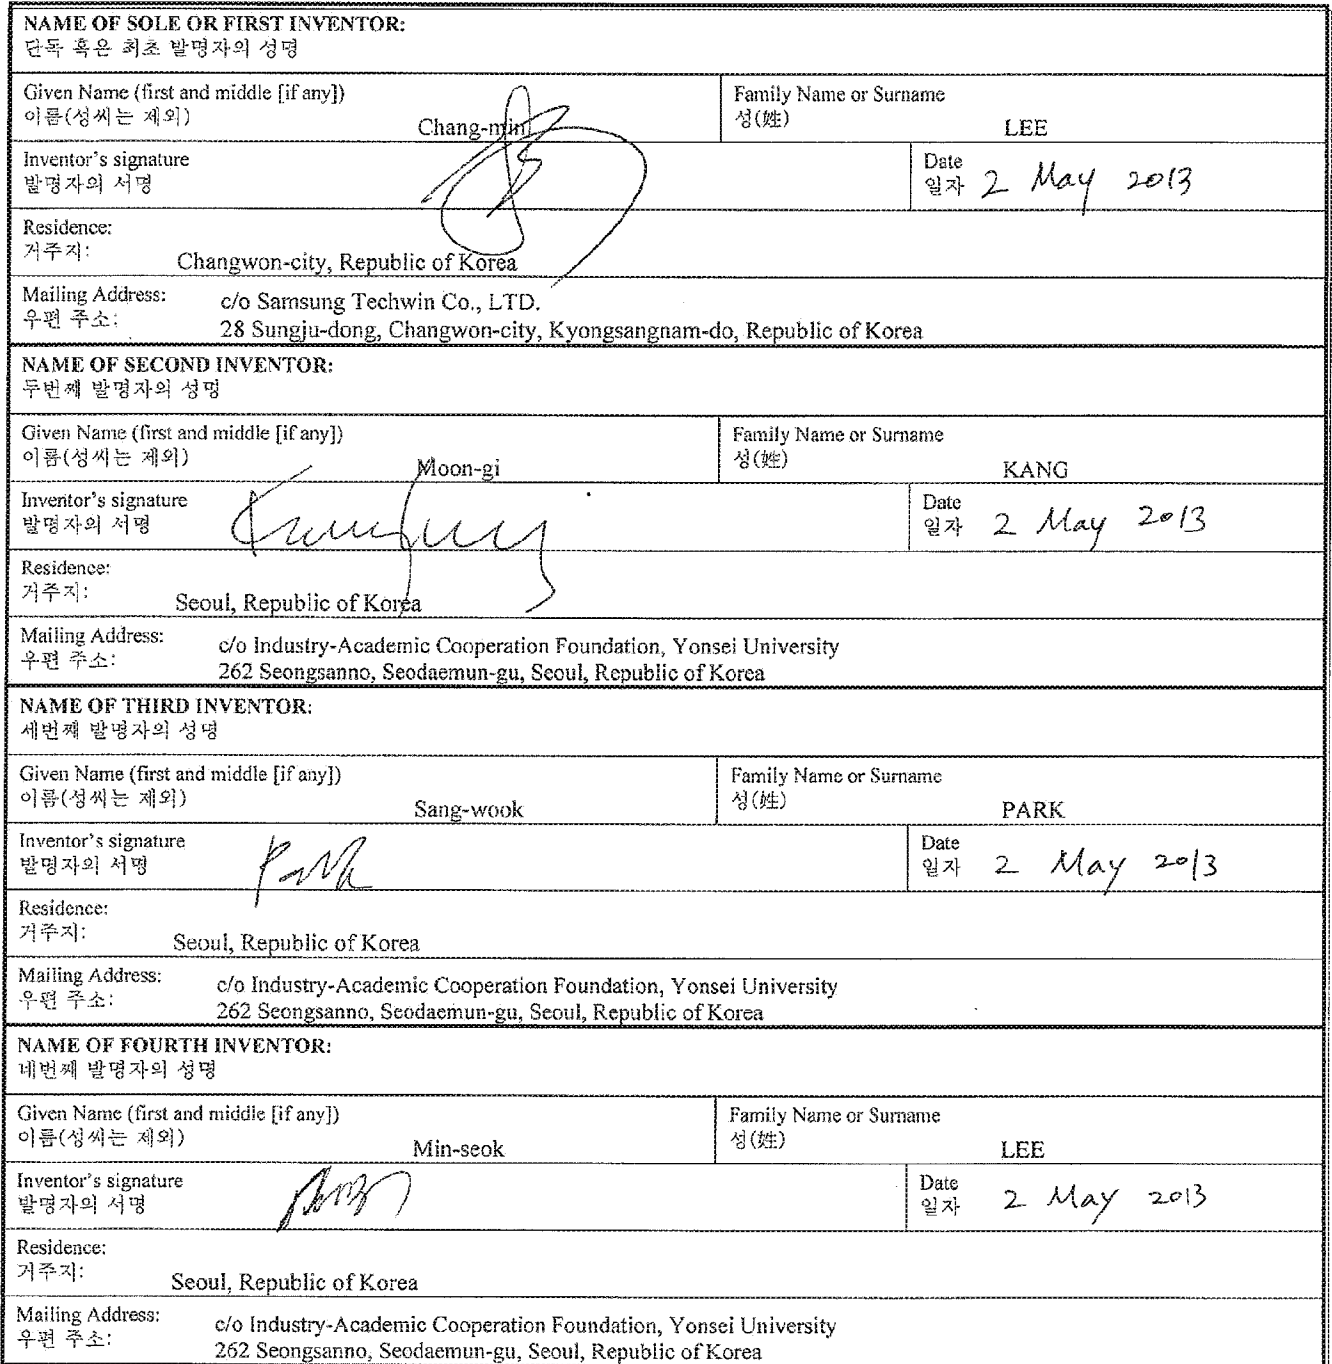 NAME OF SOLE OR FIRST INVENTOR:
단독 혹은 최초 발명자의 성명
Given Name (first and middle [if any])
이름(성씨는 제외)
Chang-min
Family Name or Surname
성(姓)
LEE
Inventor's signature
발명자의 서명
Date
일자 2 May 2013
Residence:
거주지:
Changwon-city, Republic of Korea
Mailing Address:
우편 주소:
c/o Samsung Techwin Co., LTD.
28 Sungju-dong, Changwon-city, Kyongsangnam-do, Republic of Korea
NAME OF SECOND INVENTOR:
두번째 발명자의 성명
Given Name (first and middle [if any])
이름(성씨는 제외)
Moon-gi
Family Name or Surname
성(姓)
KANG
Inventor's signature
발명자의 서명
Date
일자 2 May 2013
Residence:
거주지:
Seoul, Republic of Korea
Mailing Address:
우편 주소:
c/o Industry-Academic Cooperation Foundation, Yonsei University
262 Seongsanno, Seodaemun-gu, Seoul, Republic of Korea
NAME OF THIRD INVENTOR:
세번째 발명자의 성명
Given Name (first and middle [if any])
이름(성씨는 제외)
Sang-wook
Family Name or Surname
성(姓)
PARK
Inventor's signature
발명자의 서명
Date
일자 2 May 2013
Residence:
거주지:
Seoul, Republic of Korea
Mailing Address:
우편 주소:
c/o Industry-Academic Cooperation Foundation, Yonsei University
262 Seongsanno, Seodaemun-gu, Seoul, Republic of Korea
NAME OF FOURTH INVENTOR:
네번째 발명자의 성명
Given Name (first and middle [if any])
이름(성씨는 제외)
Min-seok
Family Name or Surname
성(姓)
LEE
Inventor's signature
발명자의 서명
Date
일자 2 May 2013
Residence:
거주지:
Seoul, Republic of Korea
Mailing Address:
우편 주소:
c/o Industry-Academic Cooperation Foundation, Yonsei University
262 Seongsanno, Seodaemun-gu, Seoul, Republic of Korea